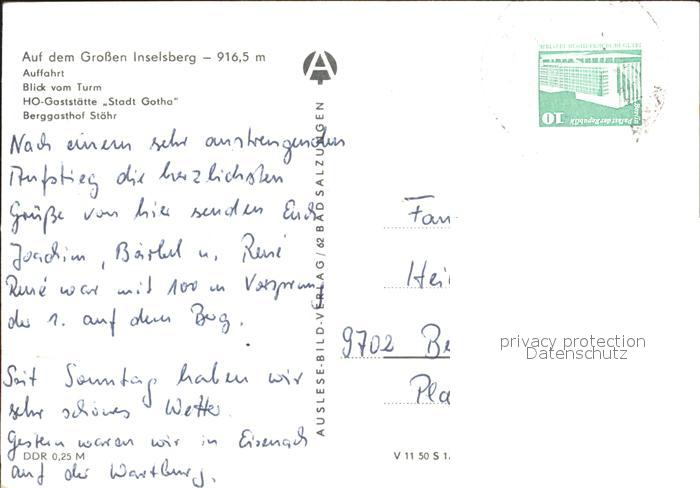 Auf dem Großen Inselsberg – 916,5 m
Auffahrt
Blick vom Turm
HO-Gaststätte „Stadt Gotha"
Berggasthof Stöhr
Nach einem sehr anstrengenden
Aufstieg die herzlichsten
Grüße von hier senden Euch
Joachim, Bärbel u. René
René war mit 100 m Vorsprung
der 1. auf dem Berg.
Seit Sonntag haben wir
sehr schönes Wetter.
Gestern waren wir in Eisenach
auf der Wartburg.
DDR 0,25 M
AUSLESE-BILD-VERLAG / 62 BAD SALZUNGEN
V 11 50 S 1.
10
Palast der Republik
Berlin
Fam
Hei
9702 Be
Pla
privacy protection
Datenschutz